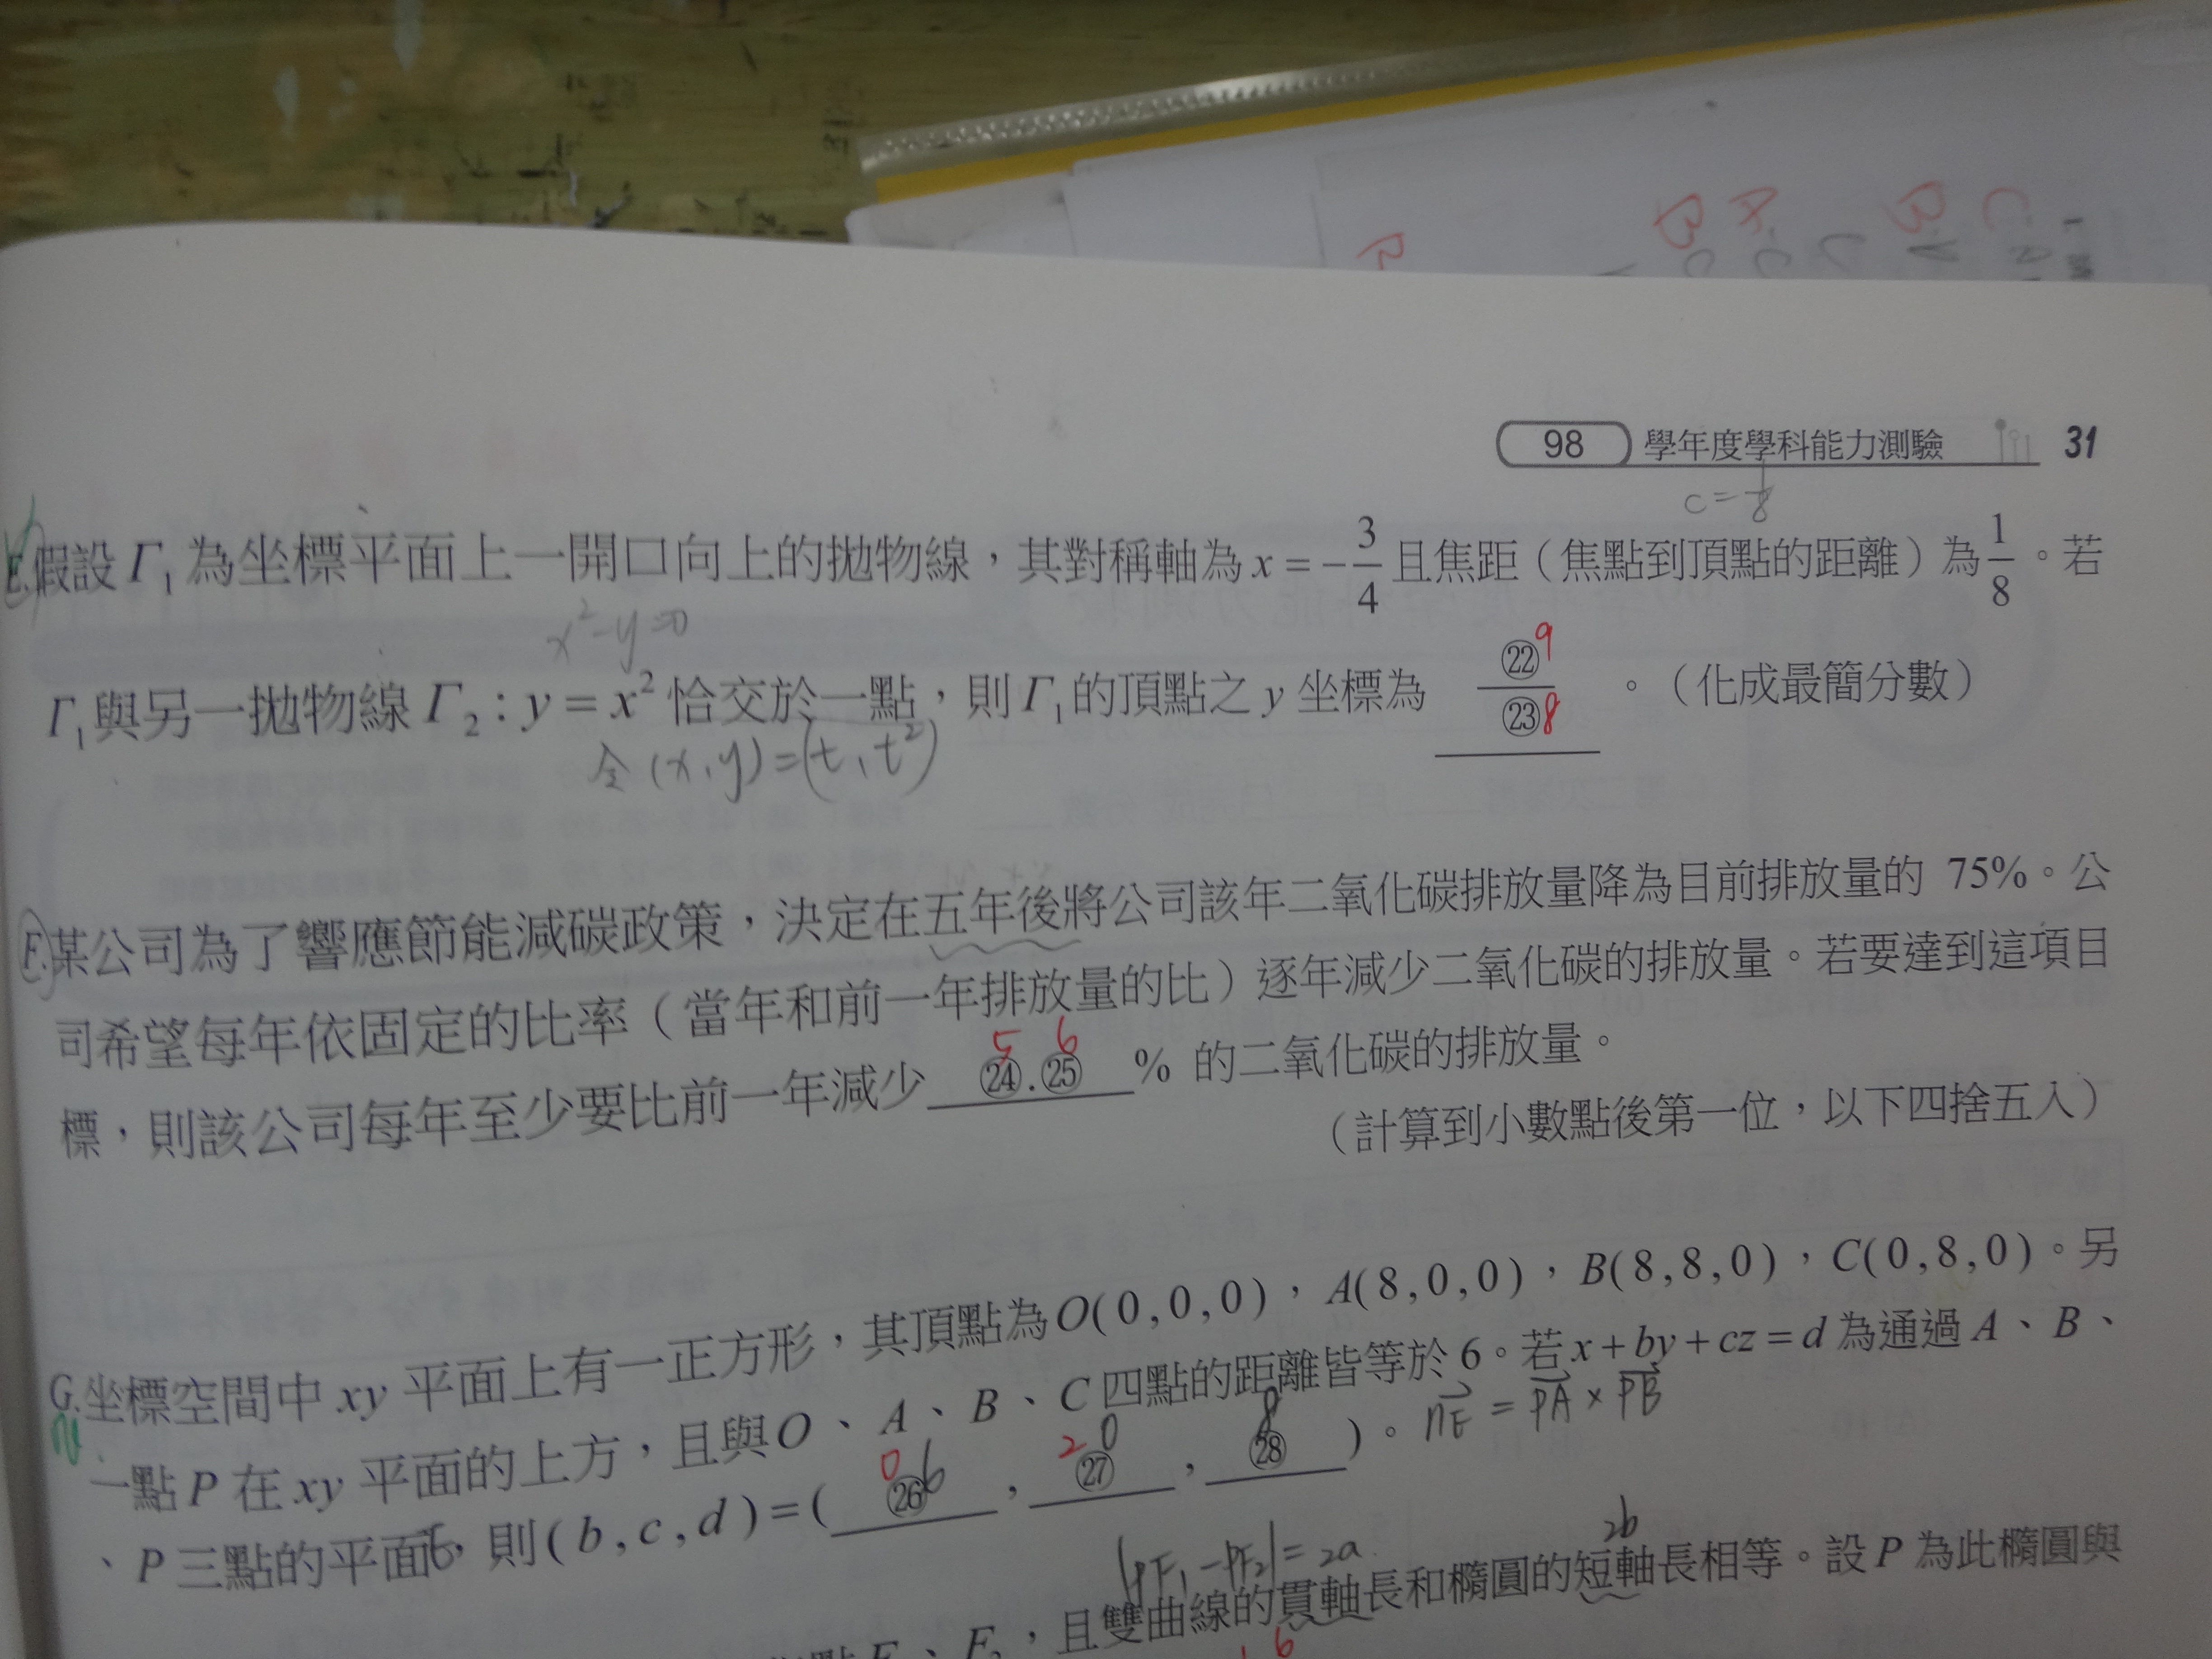 98 學年度學科能力測驗 31
c = 1/8
E.假設 Γ₁ 為坐標平面上一開口向上的拋物線，其對稱軸為 x = -3/4 且焦距（焦點到頂點的距離）為 1/8。若
x²-y=0
Γ₁與另一拋物線 Γ₂ : y = x² 恰交於一點，則 Γ₁ 的頂點之 y 坐標為 ㉒9/㉓8 。（化成最簡分數）
令 (x,y)=(t,t²)
F.某公司為了響應節能減碳政策，決定在五年後將公司該年二氧化碳排放量降為目前排放量的 75%。公
司希望每年依固定的比率（當年和前一年排放量的比）逐年減少二氧化碳的排放量。若要達到這項目
5 6
標，則該公司每年至少要比前一年減少 ㉔.㉕ % 的二氧化碳的排放量。
（計算到小數點後第一位，以下四捨五入）
G.坐標空間中 xy 平面上有一正方形，其頂點為 O(0,0,0)，A(8,0,0)，B(8,8,0)，C(0,8,0)。另
一點 P 在 xy 平面的上方，且與 O、A、B、C 四點的距離皆等於 6。若 x+by+cz=d 為通過 A、B、
0 6 2 0 8
、P 三點的平面，則 (b,c,d)=( ㉖ , ㉗ , ㉘ )。 nE = PA × PB
|PF₁-PF₂|=2a 2b
F₂，且雙曲線的貫軸長和橢圓的短軸長相等。設 P 為此橢圓與
6